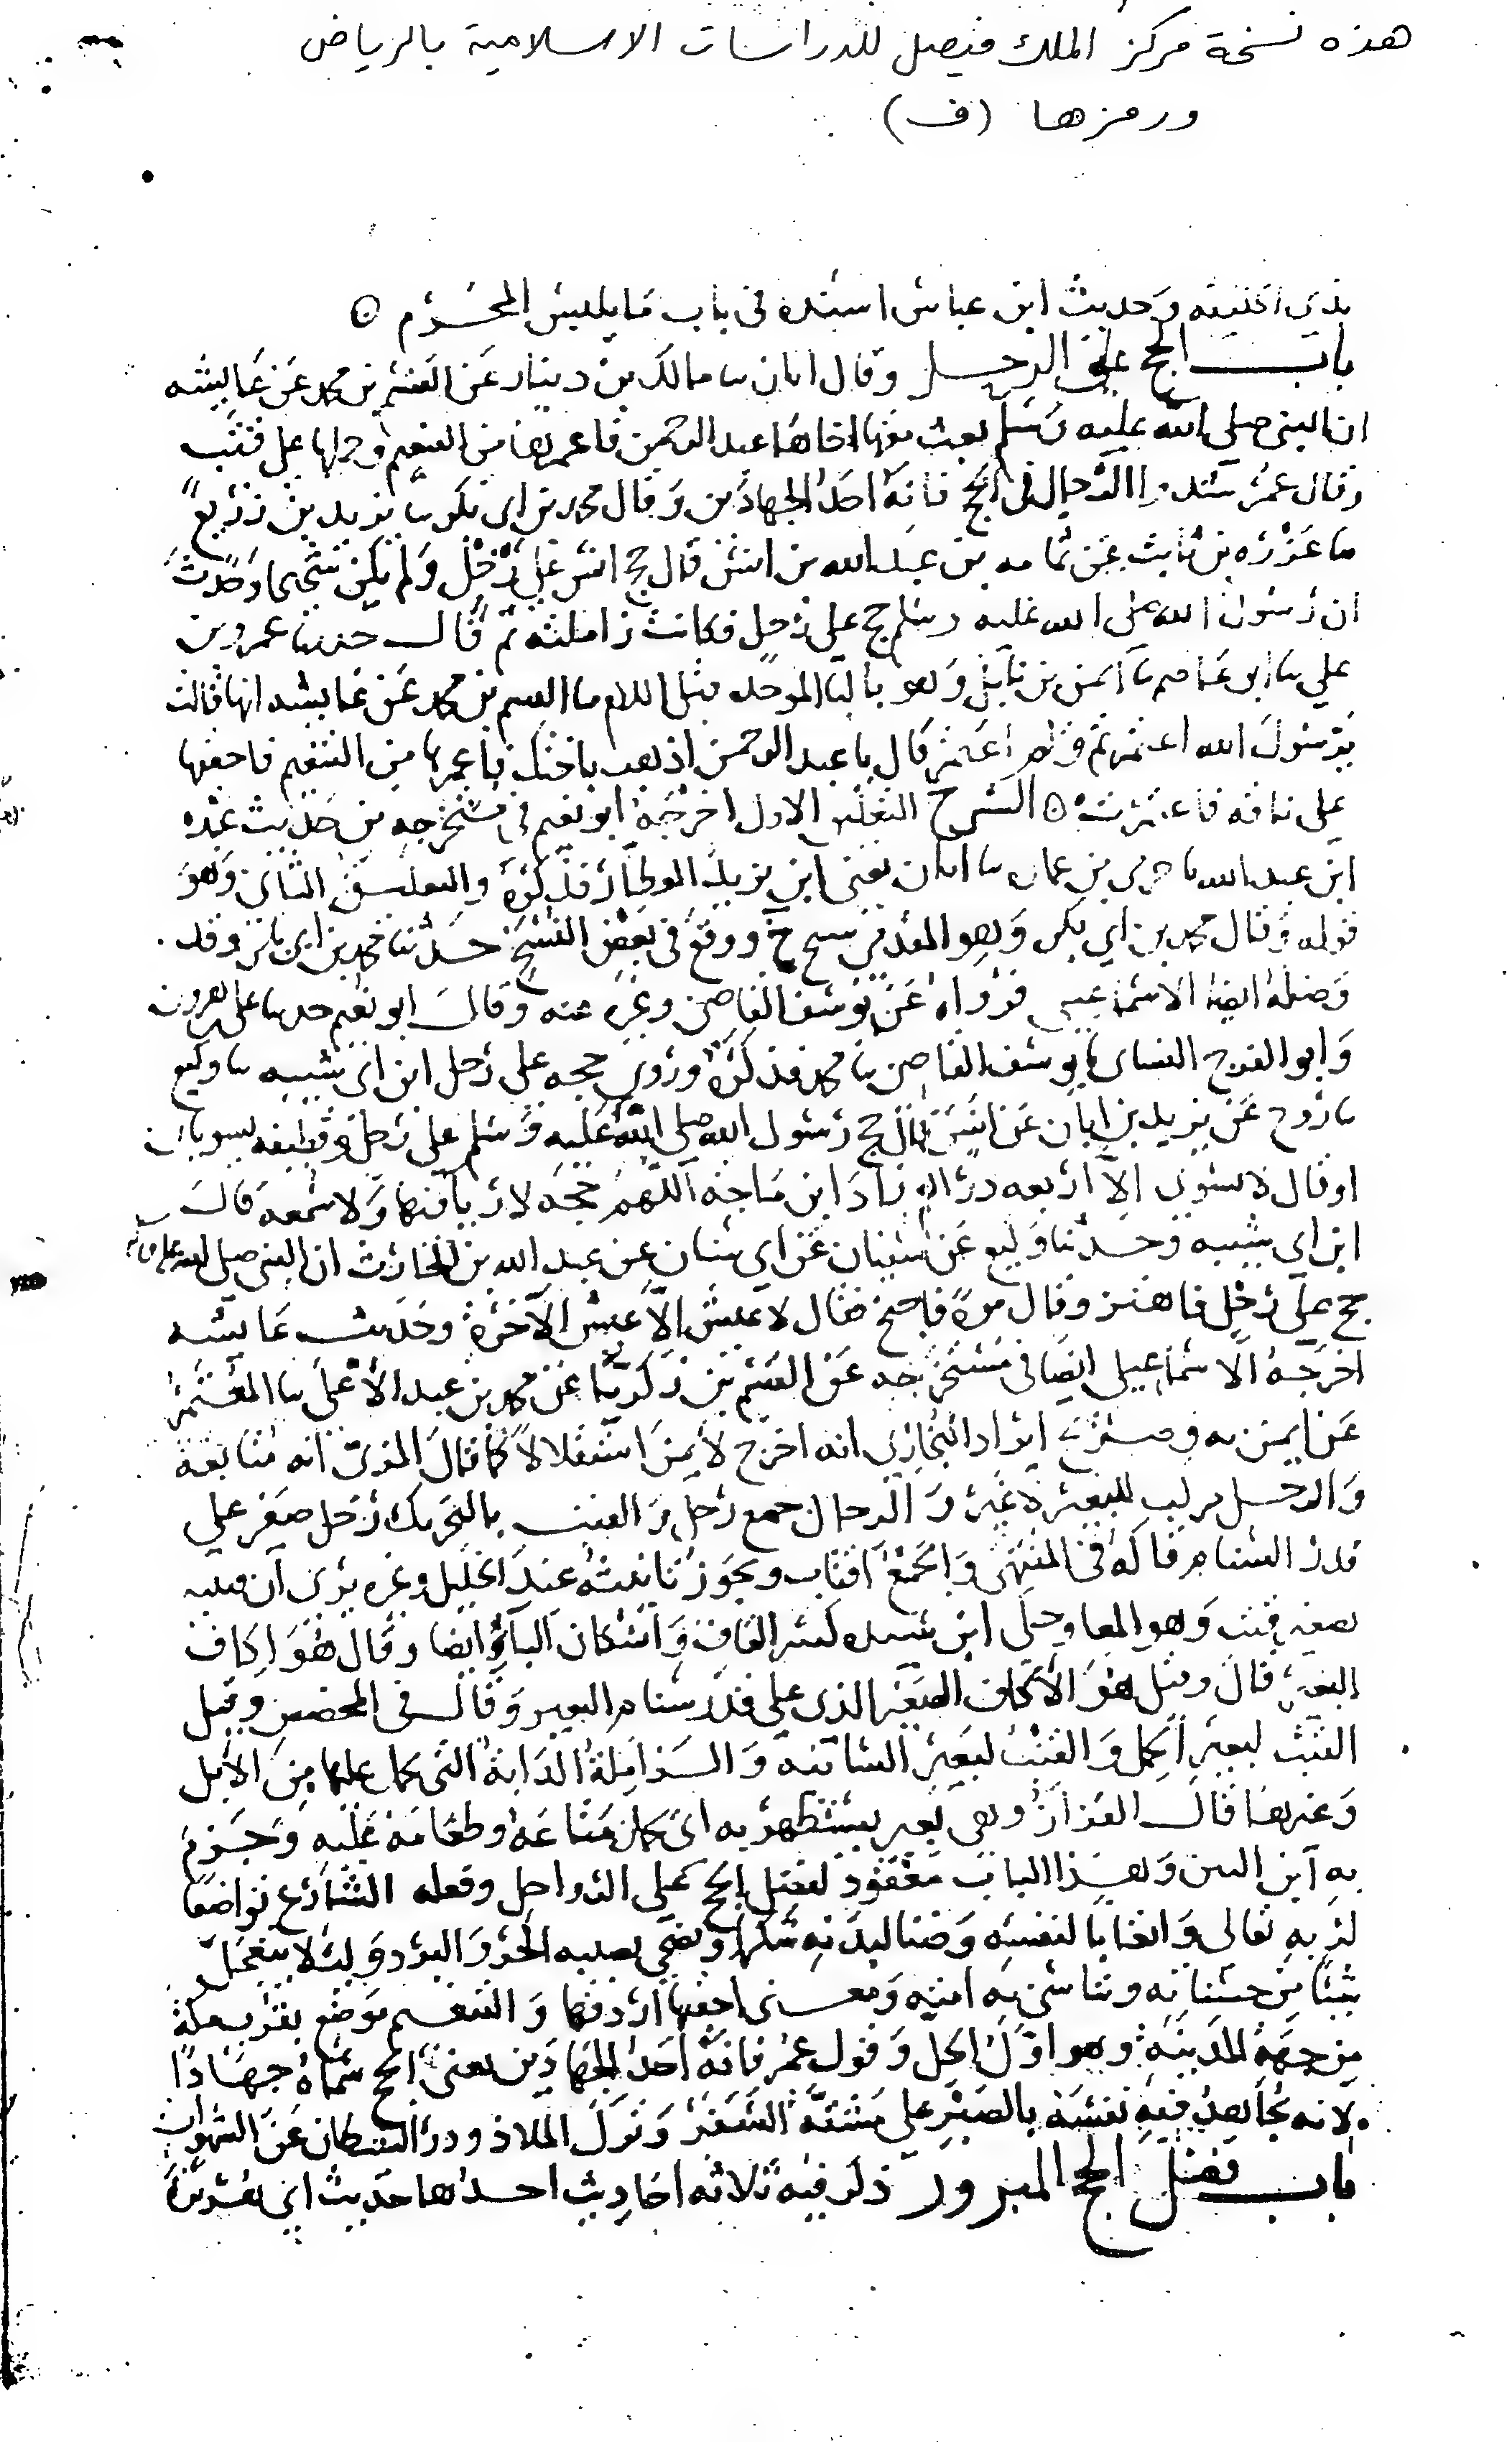 هذه نسخة مركز الملك فيصل للدراسات الاسلامية بالرياض
ورمزها (ف)
بذي الحليفه وحديث ابن عباس اسنده في باب ما يلبس المحرم
باب الحج على الرحل وقال ابان ما مالك بن دينار عن القسم بن محمد عن عايشه
ان النبي صلى الله عليه وسلم بعث معها اخاها عبد الرحمن فاعمرها من التنعيم وحملها على قتب
وقال عمر شدوا الرحال في الحج فانه احد الجهادين وقال محمد بن ابي بكر ما يزيد بن زريع
ما عزره بن ثابت عن ثمامه بن عبد الله بن انس قال حج انس على رحل ولم يكن شحيحا وحدث
ان رسول الله صلى الله عليه وسلم حج على رحل وكانت زاملته ثم قال حدثنا عمرو بن
علي ما ابو عاصم ما ايمن بن نابل وهو بالبا الموحده قبل اللام ما القسم بن محمد عن عايشه انها قالت
يرسول الله اعتمرتم ولم اعتمر قال يا عبد الرحمن اذهب باختك فاعمرها من التنعيم فاحقبها
على ناقه فاعتمرت الشرح التعليق الاول اخرجه ابو نعيم في مستخرجه من حديث عبده
ابن عبد الله ما حرمي بن عماره ما ابان يعني ابن يزيد العطار فذكره والتعليق الثاني وهو
قوله وقال محمد بن ابي بكر وهو المقدمي شيخ خ ووقع في بعض النسخ حدثنا محمد بن ابي بكر وقد
وصله ايضا الاسماعيلي فرواه عن يوسف القاضي وغيره عنه وقال ابو نعيم حدثنا علي بن هرون
وابو الفرج النسائي ما يوسف القاضي ما محمد فذكره وروى حجه على رحل ابن ابي شيبه ما وكيع
ما روح عن يزيد بن ابان عن انس قال حج رسول الله صلى الله عليه وسلم على رحل وقطيفه يسويان
او قال لا يسوي الا اربعه دراهم زاد ابن ماجه اللهم حجه لا رياء فيها ولا سمعه قال
ابن ابي شيبه وحدثنا وكيع عن سفيان عن ابي سنان عن عبد الله بن الحارث ان النبي صلى الله عليه وسلم
حج على رحل فاهتز وقال مرة فاجتنح فقال لا عيش الا عيش الآخرة وحديث عايشه
اخرجه الاسماعيلي ايضا في مستخرجه عن القسم بن زكريا عن محمد بن عبد الاعلى ما المعتمر
عن ايمن به ايراد البخاري انه اخرج لايمن استقلالا كما قال المزي انه متابعة
والرحل مركب للبعير لا غير والرحال جمع رحل والقتب بالتحريك رحل صغير على
قدر السنام قاله في المنتهى والجمع اقتاب ويجوز تانيثه عند الخليل وغيره يرى ان قتيبه
تصغير قتب وهو المعا وحكى ابن سيده كسر القاف واسكان التاء ايضا وقال هو اكاف
البعير قال وقيل هو الاكاف الصغير الذي على قدر سنام البعير وقال في المخصص وقيل
القتب لبعير الحمل والقتب لبعير السانيه والزاملة الدابة التي يحمل عليها من الابل
وغيرها قال القزاز وهي بعير يستظهر به اي يحمل متاعه وطعامه عليه وجزم
به ابن التين وهذا الباب معقود لفضل الحج على الرواحل وفعله الشارع تواضعا
لربه تعالى واتعابا لنفسه
شيئا من حسناته وتتاسى به امته ومعنى احقبها اردفها والتنعيم موضع بقرب مكة
من جهة المدينة وهو اول الحل وقول عمر فانه احد الجهادين يعني الحج سماه جهادا
لانه يجاهد فيه نفسه بالصبر على مشقة السفر وترك الملاذ ودرء الشيطان عن الشهوات
باب فضل الحج المبرور ذكر فيه ثلاثه احاديث احدها حديث ابي هريرة